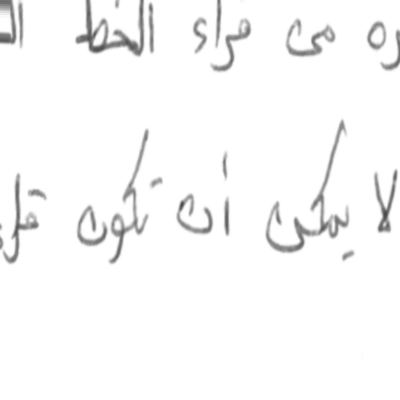 من قراء الخط
لا يمكن أن تكون